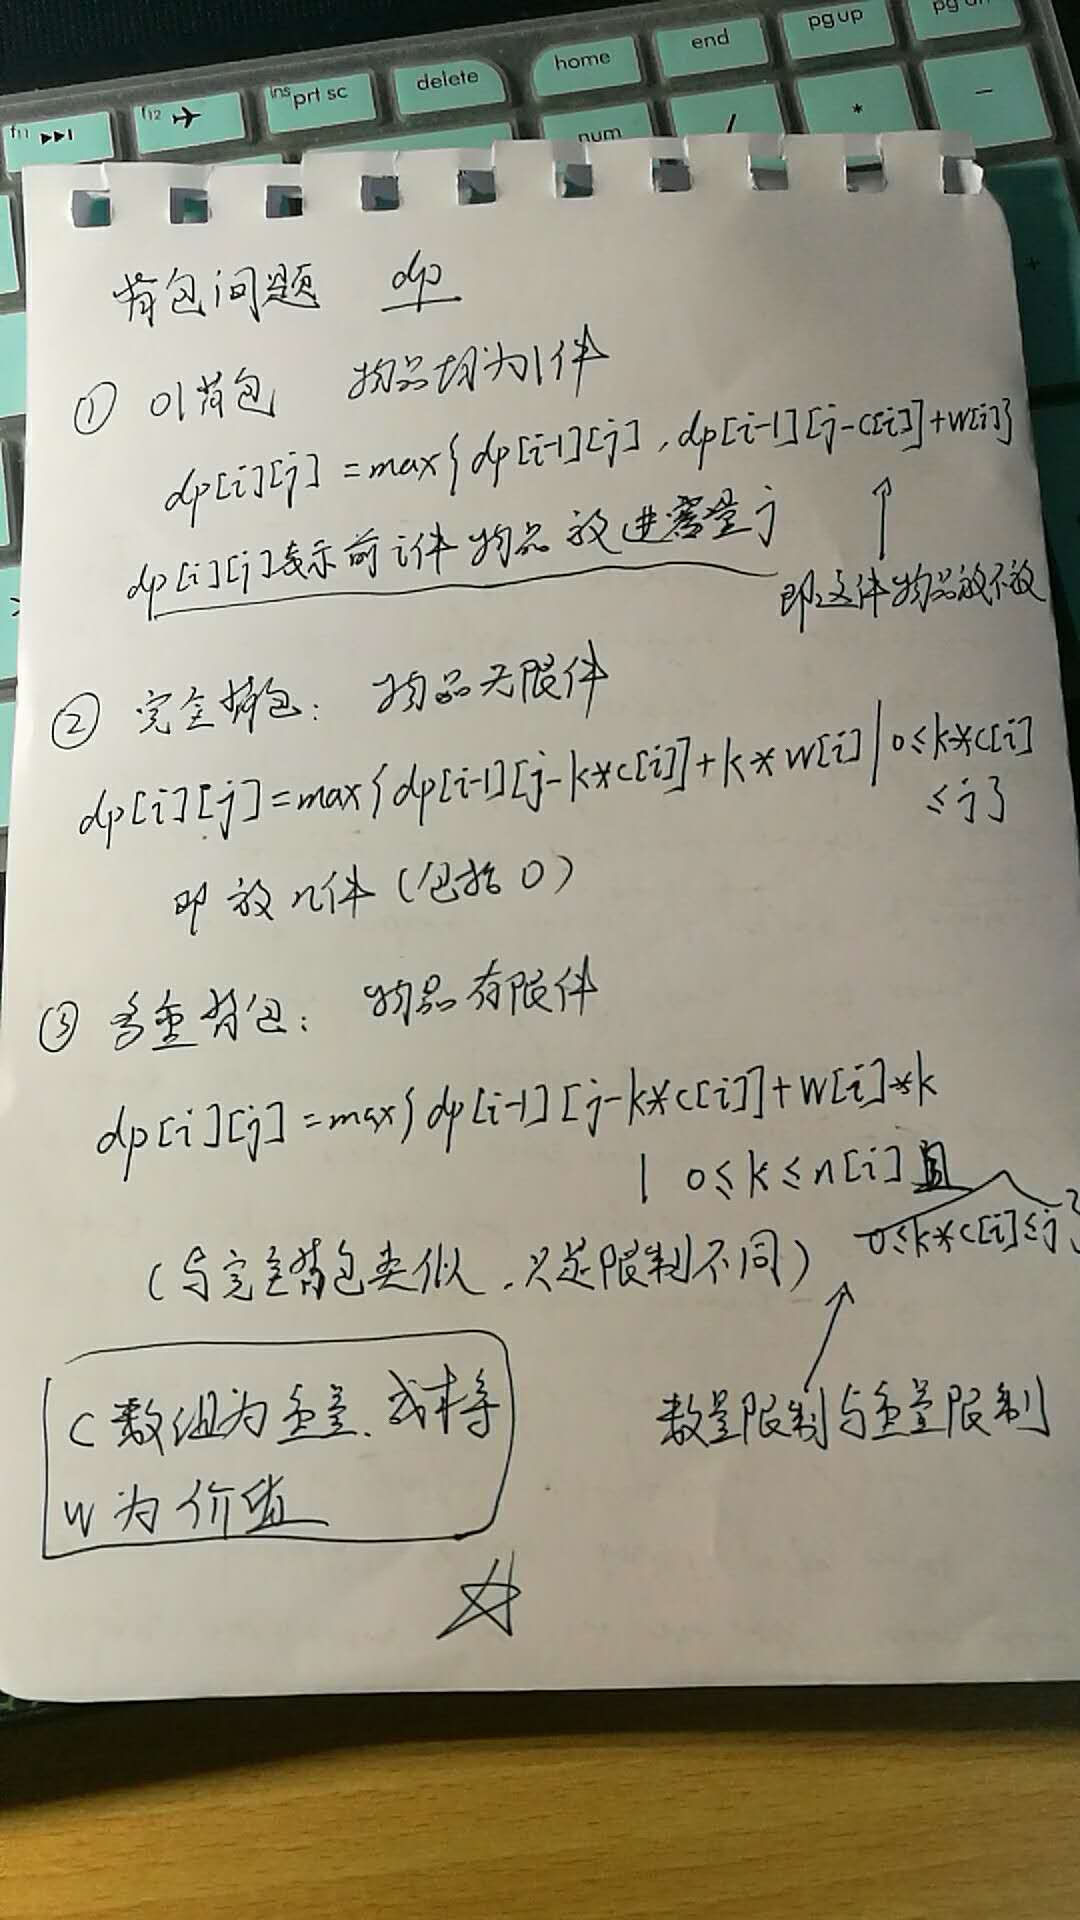 f11
f12
ins prt sc
delete
home
end
pg up
num
/
*
-
+
背包问题 dp
① 01背包 物品均为1件
dp[i][j] = max{dp[i-1][j], dp[i-1][j-c[i]]+w[i]}
dp[i][j]表示前i件物品放进容量j
即这件物品放不放
② 完全背包: 物品无限件
dp[i][j]=max{dp[i-1][j-k*c[i]]+k*w[i]|0≤k*c[i]
≤j}
即放n件(包括0)
③ 多重背包: 物品有限件
dp[i][j]=max{dp[i-1][j-k*c[i]]+w[i]*k
| 0≤k≤n[i]且
0≤k*c[i]≤j}
(与完全背包类似,只是限制不同)
数量限制与重量限制
C数组为重量、或
W为价值